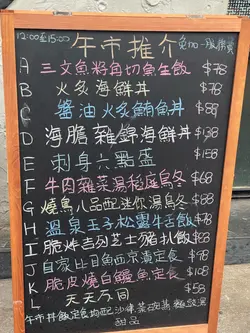 12:00至15:00 午市推介 免加一服務費
A 三文魚籽角切魚生飯 $78
B 火炙海鮮丼 $78
C 醬油火炙鮪魚丼 $88
D 海膽雜錦海鮮丼 $138
E 刺身六點盛 $158
F 牛肉雜菜湯稻庭烏冬 $68
G 燒鳥八品配迷你湯烏冬 $88
H 溫泉玉子松露牛舌飯 $78
I 脆炸吉列芝士豬扒飯 $68
J 自家比目魚西京漬定食 $78
K 脆皮燒白鱔魚定食 $108
L 天天不同 $68
午市丼飯定食均配沙律,茶碗蒸,麵豉湯
甜品